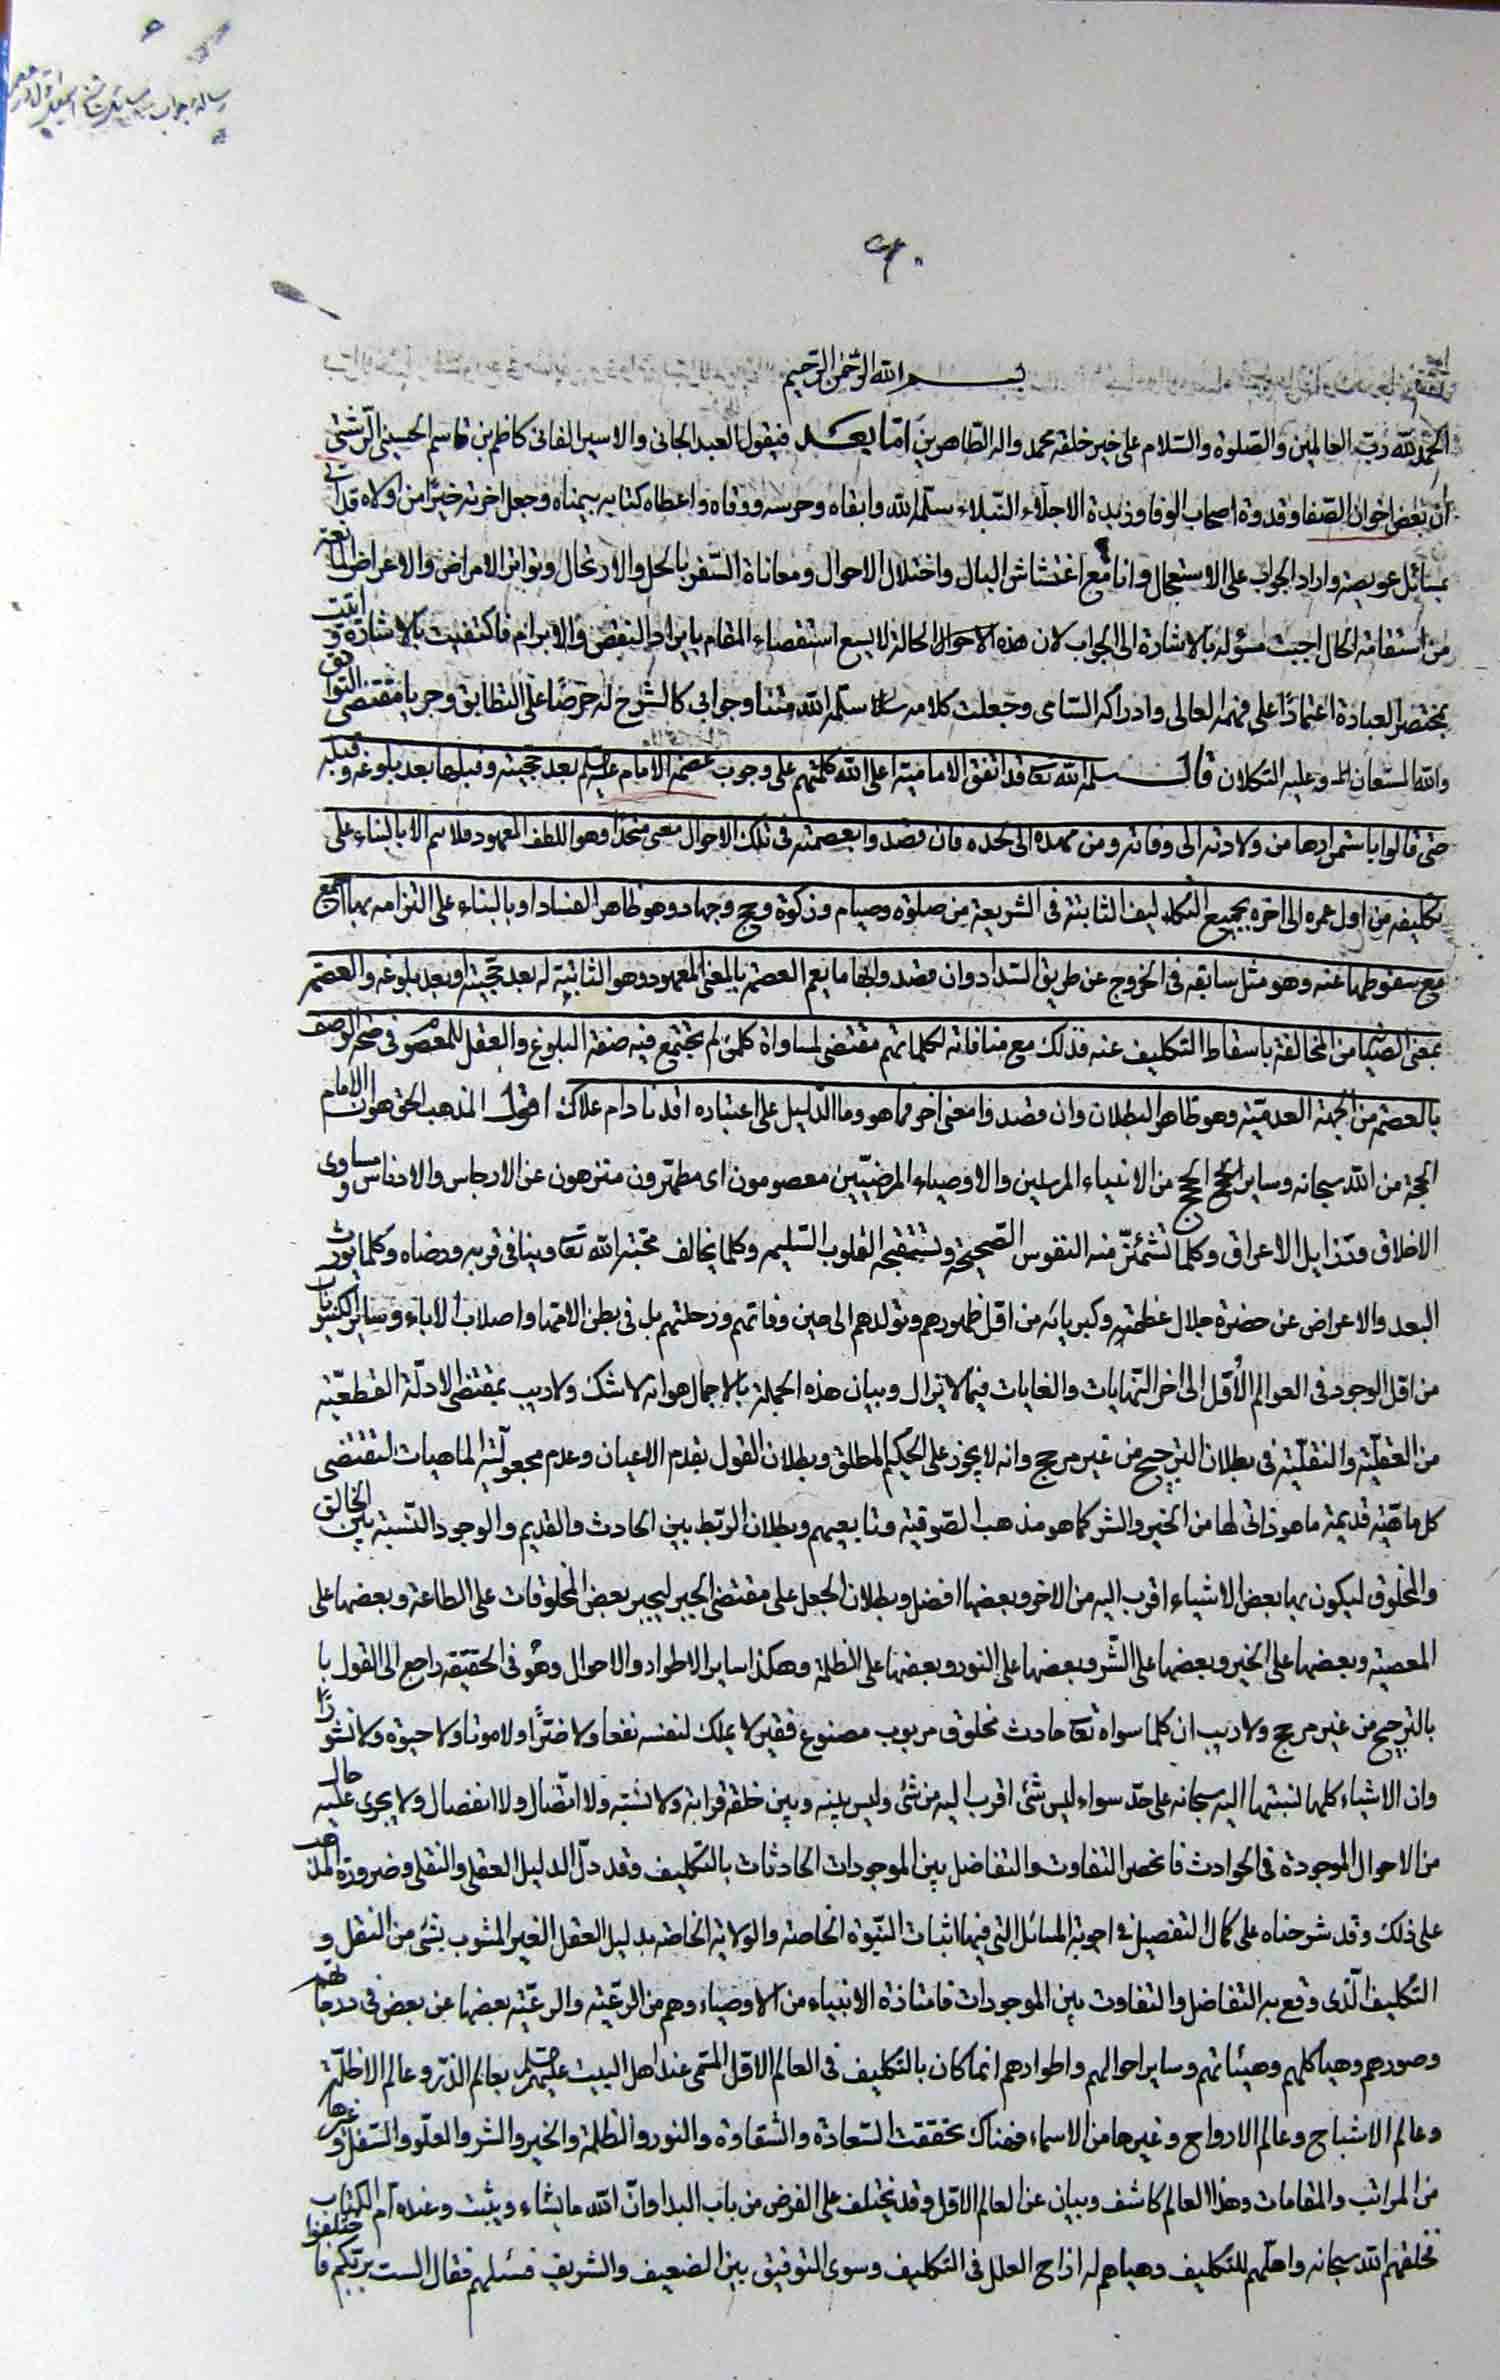 بسم الله الرحمن الرحيم
الحمد لله رب العالمين والصلوة والسلام على خير خلقه محمد واله الطاهرين اما بعد فيقول العبد الجاني والاسير الفاني كاظم بن قاسم الحسيني الرشتي
ان بعض اخوان الصفا وقدوة اصحاب الوفا وزبدة الاجلاء النبلاء سلمه الله وابقاه وحرسه ووقاه واعطاه كتابه بيمناه وجعل اخرته خيرا من اولاه قد اتى
بمسائل عويصة واراد الجواب على الاستعجال وانا مع اغتشاش البال واختلال الاحوال ومعاناة السفر بالحل والارتحال وتواتر الامراض والاعراض المانعة
من استقامة الحال اجبت مسؤله بالاشارة الى الجواب لان هذه الاحوال الحالة لا يسع استقصاء المقام بايراد النقض والابرام فاكتفيت بالاشارة واتيت
بمختصر العبارة اعتمادا على فهمه العالي وادراكه السامي وجعلت كلامه سلمه الله متنا وجوابي كالشرح له حرضا على التطابق وجريا بمقتضى التوافق
والله المستعان وعليه التكلان قال سلمه الله تعا قد اتفق الامامية اعلى الله كلمتهم على وجوب عصمة الامام عليه السلم بعد حجيته وقبلها بعد بلوغه وقبله
حتى قالوا باستمرارها من ولادته الى وفاته ومن مهده الى لحده فان قصدوا بعصمته في تلك الاحوال معنى متحدا وهو اللطف المعهود فلا يتم الا بالبناء على
تكليفه من اول عمره الى اخره بجميع التكاليف الثابتة في الشريعة من صلوة وصيام وزكوة وحج وجهاد وهو ظاهر الفساد او بالبناء على التزامه بها اجمع
مع سقوطها عنه وهو مثل سابقه في الخروج عن طريق السداد وان قصدوا بها ما يعم العصمة بالمعنى المعهود وهو الثانية له بعد حجيته او بعد بلوغه والعصمة
بمعنى الصيانة من المخالفة باسقاط التكليف عنه فذلك مع منافاته لكلماتهم مقتضى لمساواة كل من لم يجتمع فيه صفة البلوغ والعقل للمعصوم في صحة الوصف
بالعصمة من الجهة العدمية وهو ظاهر البطلان وان قصدوا معنى اخر فما هو وما الدليل على اعتباره افدنا دام علاك اقول المذهب الحق هو ان الامام
الحجة من الله سبحانه وساير الحجج من الانبياء المرسلين والاوصياء المرضيين معصومون اى مطهرون متنزهون عن الارجاس والادناس ومساوى
الاخلاق ورذايل الاعراق وكلما تشمئز منه النفوس الصحيحة وتستقبحه القلوب السليمه وكلما يخالف محبة الله تعا وينافي قربه ورضاه وكلما يورث
البعد والاعراض عن حضرة جلال عظمته وكبريائه من اول ظهورهم وتولدهم الى حين وفاتهم ورحلتهم بل في بطن الامهات واصلاب الاباء وساير الكينونات
من اول الوجود في العوالم الأول الى اخر النهايات والغايات فيما لا يزال وبيان هذه الجملة بالاجمال هو انه لا شك ولا ريب بمقتضى الادلة القطعية
من العقلية والنقلية في بطلان الترجيح من غير مرجح وانه لا يجوز على الحكيم المطلق وبطلان القول بقدم الاعيان وعدم مجعولية الماهيات لتقتضى
كل ماهية قديمة ما هو ذاتى لها من الخير والشر كما هو مذهب الصوفية وتابعيهم وبطلان الربط بين الحادث والقديم والوجود النسبة بين الخالق
والمخلوق ليكون بها بعض الاشياء اقرب اليه من الاخر وبعضها افضل وبطلان الجعل على مقتضى الجبر ليجبر بعض المخلوقات على الطاعة وبعضها على
المعصية وبعضها على الخير وبعضها على الشر وبعضها على النور وبعضها على الظلمة وهكذا ساير الاطوار والاحوال وهو في الحقيقه راجع الى القول با
بالترجيح من غير مرجح ولا ريب ان كلما سواه تعا حادث مخلوق مربوب مصنوع فقير لا يملك لنفسه نفعا ولا ضرا ولا موتا ولا حيوة ولا نشورا
وان الاشياء كلها نسبتها اليه سبحانه على حد سواء ليس شئ اقرب اليه من شئ وليس بينه وبين خلقه قرابة ولا نسبة ولا اتصال ولا انفصال ولا يجرى عليه حال
من الاحوال الموجودة في الحوادث فانحصر التفاوت والتفاضل بين الموجودات الحادثات بالتكليف وقد دل الدليل العقلى والنقلى وضرورة المذهب
على ذلك وقد شرحناه على كمال التفصيل في اجوبة المسائل التي فيها اثبات النبوة الخاصة والولاية الخاصة بدليل العقل الغير المشوب بشئ من النقل و
التكليف الذى وقع به التفاضل والتفاوت بين الموجودات فامتازه الانبياء من الاوصياء وهم من الرعية والرعية بعضها عن بعض في درجاتهم
وصورهم وهياكلهم وهيئاتهم وساير احوالهم واطوارهم انما كان بالتكليف في العالم الاول المسمى عند اهل البيت عليهم السلم بعالم الذر وعالم الاظلة
وعالم الاشباح وعالم الارواح وغيرها من الاسماء فهناك تحققت السعادة والشقاوة والنور والظلمة والخير والشر والعلو والسفل وغيرها
من المراتب والمقامات وهذا العالم كاشف وبيان عن العالم الاول وقد يختلف على الفرض من باب البدا وان الله ما يشاء ويثبت وعنده ام الكتاب
فخلقهم الله سبحانه واهلهم للتكليف وهياهم له ازاح العلل في التكليف وسوى التوفيق بين الضعيف والشريف فسئلهم فقال الست بربكم فاختلفوا